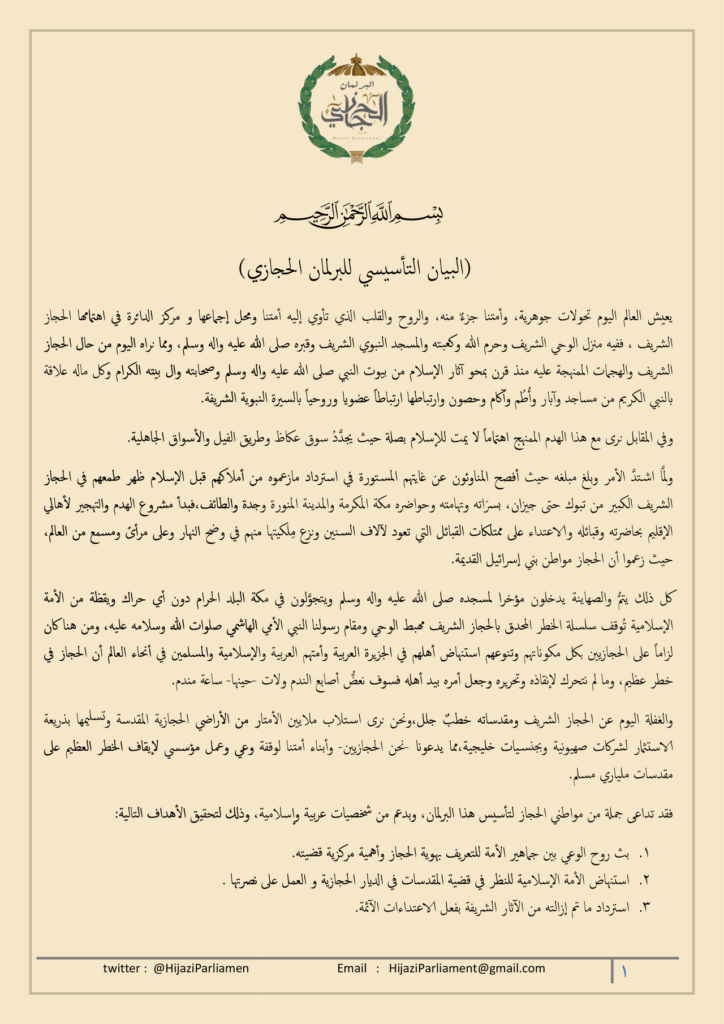 البرلمان
الحجازي
Hijazi Parliament
بسم الله الرحمن الرحيم
(البيان التأسيسي للبرلمان الحجازي)
يعيش العالم اليوم تحولات جوهرية، وأمتنا جزءٌ منه، والروح والقلب الذي تأوي إليه أمتنا ومحل إجماعها و مركز الدائرة في اهتمامها الحجاز
الشريف ، ففيه منزل الوحي الشريف وحرم الله وكعبته والمسجد النبوي الشريف وقبره صلى الله عليه واله وسلم، ومما نراه اليوم من حال الحجاز
الشريف والهجمات الممنهجة عليه منذ قرن بمحو آثار الإسلام من بيوت النبي صلى الله عليه واله وسلم وصحابته وال بيته الكرام وكل ماله علاقة
بالنبي الكريم من مساجد وآبار وأُطُم وآكام وحصون وارتباطها ارتباطاً عضويا وروحياً بالسيرة النبوية الشريفة.
وفي المقابل نرى مع هذا الهدم الممنهج اهتماماً لا يمت للإسلام بصلة حيث يجدَّدُ سوق عكاظ وطريق الفيل والأسواق الجاهلية.
ولمَّا اشتدَّ الأمر وبلغ مبلغه حيث أفصح المناوئون عن غايتهم المستورة في استرداد مازعموه من أملاكهم قبل الإسلام ظهر طمعهم في الحجاز
الشريف الكبير من تبوك حتى جيزان، بسرَاته وتهامته وحواضره مكة المكرمة والمدينة المنورة وجدة والطائف،فبدأ مشروع الهدم والتهجير لأهالي
الإقليم بحاضرته وقبائله والاعتداء على ممتلكات القبائل التي تعود لآلاف السنين ونزع مِلكيتها منهم في وضح النهار وعلى مرأىً ومسمع من العالم،
حيث زعموا أن الحجاز مواطن بني إسرائيل القديمة.
كل ذلك يتمُّ والصهاينة يدخلون مؤخرا لمسجده صلى الله عليه واله وسلم ويتجوَّلون في مكة البلد الحرام دون أي حراك ويقظة من الأمة
الإسلامية تُوقف سلسلة الخطر المحدق بالحجاز الشريف مهبط الوحي ومقام رسولنا النبي الأمي الهاشمي صلوات الله وسلامه عليه، ومن هنا كان
لزاماً على الحجازيين بكل مكوناتهم وتنوعهم استنهاض أهلهم في الجزيرة العربية وأمتهم العربية والإسلامية والمسلمين في أنحاء العالم أن الحجاز في
خطر عظيم، وما لم نتحرك لإنقاذه وتحريره وجعل أمره بيد أهله فسوف نعضُّ أصابع الندم ولات -حينها- ساعة مندم.
والغفلة اليوم عن الحجاز الشريف ومقدساته خطبٌ جلل،ونحن نرى استلاب ملايين الأمتار من الأراضي الحجازية المقدسة وتسليمها بذريعة
الاستثمار لشركات صهيونية وبجنسيات خليجية،مما يدعونا نحن الحجازيين- وأبناء أمتنا لوقفة وعي وعمل مؤسسي لإيقاف الخطر العظيم على
مقدسات ملياري مسلم.
فقد تداعى جملة من مواطني الحجاز لتأسيس هذا البرلمان، وبدعم من شخصيات عربية وإسلامية، وذلك لتحقيق الأهداف التالية:
١. بث روح الوعي بين جماهير الأمة للتعريف بهوية الحجاز وأهمية مركزية قضيته.
٢. استنهاض الأمة الإسلامية للنظر في قضية المقدسات في الديار الحجازية و العمل على نصرتها .
٣. استرداد ما تم إزالته من الآثار الشريفة بفعل الاعتداءات الآثمة.
twitter : @HijaziParliamen Email : HijaziParliament@gmail.com ١